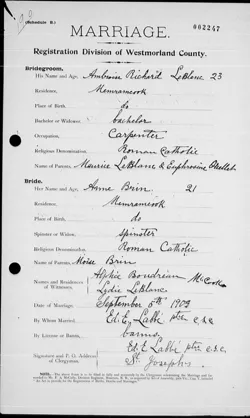 (Schedule B.)
002247
MARRIAGE.
Registration Division of Westmorland County.
Bridegroom.
His Name and Age, Ambroise Richard LeBlanc 23
Residence, Memramcook
Place of Birth, do
Bachelor or Widower, bachelor
Occupation, Carpenter
Religious Denomination, Roman Catholic
Name of Parents, Maurice LeBlanc & Euphrosine
Bride.
Her Name and Age, Anne Brin 21
Residence, Memramcook
Place of Birth, do
Spinster or Widow, spinster
Religious Denomination, Roman Catholic
Name of Parents Moise Brin
Names and Residences of Witnesses, Alphie Boudreau
Lydie LeBlanc
Date of Marriage, September 5th 1903
By Whom Married, Ed. E. Labbé ptre c.s.c.
By License or Banns, banns
Signature and P. O. Address of Clergyman, Ed. E. Labbé ptre c.s.c.
St Joseph's